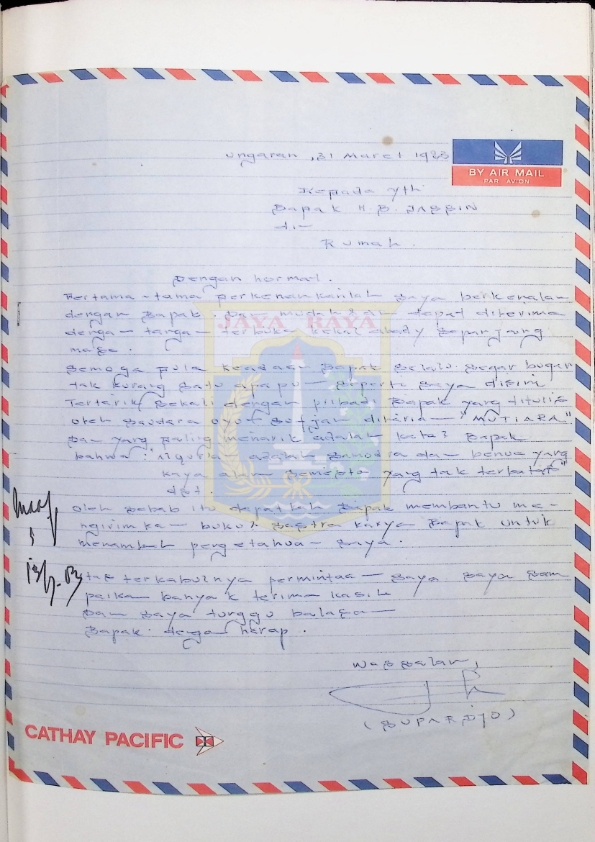 Ungaran, 31 Maret 1983
BY AIR MAIL
PAR AVION
Kepada Yth
Bapak H.B. JASSIN
di-
Rumah.
Dengan hormat.
Pertama-tama perkenankanlah saya berkenalan
dengan Bapak dan dapat diterima
dengan tangan terbuka kekal abady sepanjang
masa.
JAYA RAYA
Semoga pula keadaan Bapak selalu segar bugar
tak kurang satu apapun seperti saya disini
Tertarik sekali dengan Bapak yang ditulis
oleh saudara di harian "MUTIARA"
Dan yang paling menarik adalah kata2 Bapak
bahwa: Alqur'an adalah samodra dan benua yang
kaya semesta yang tak terbatas"
dst.
Oleh sebab itu dapatlah Bapak membantu me-
ngirimkan buku2 sastra karya Bapak untuk
menambah pengetahuan saya.
Atas terkabulnya permintaan saya saya sam
paikan banyak terima kasih
Dan saya tunggu balasan
Bapak dengan harap.
Wassalam,
(SUPARDJO)
CATHAY PACIFIC